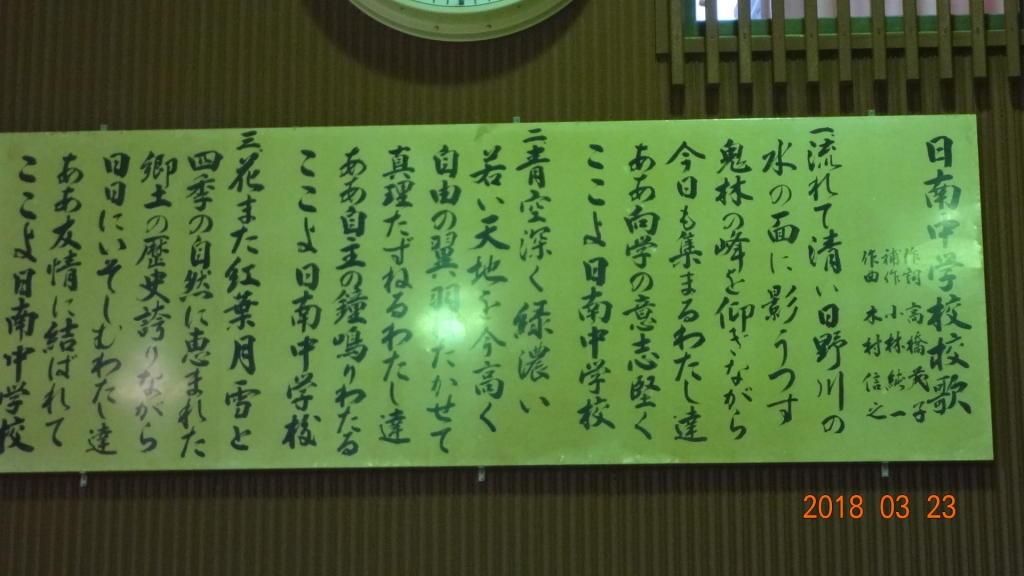 日南中学校校歌
作詞 高橋 英子
補作 小林 純一
作曲 木村 信之
一 流れて清い日野川の
水の面に影うつす
鬼林の峰を仰ぎながら
今日も集まるわたし達
ああ向学の意志堅く
ここよ日南中学校
二 青空深く緑濃い
若い天地を今高く
自由の翼羽ばたかせて
真理たずねるわたし達
ああ自主の鐘鳴りわたる
ここよ日南中学校
三 花また紅葉月雪と
四季の自然に恵まれた
郷土の歴史誇りながら
日日にいそしむわたし達
ああ友情に結ばれて
ここよ日南中学校
2018 03 23